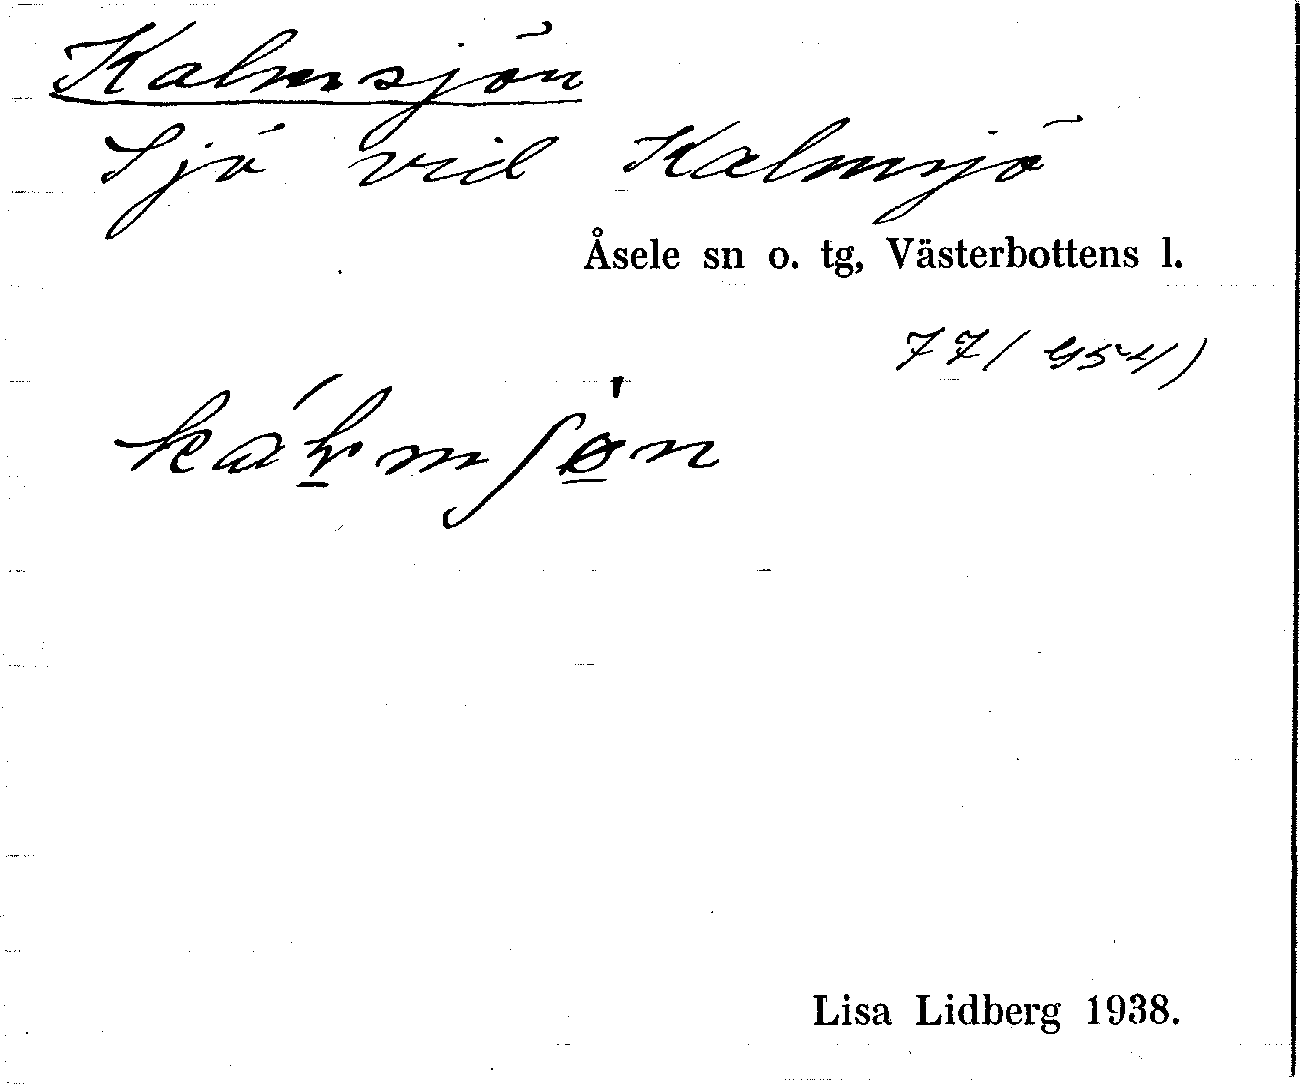 Kalmsjön
Sjö vid Kalmsjö
Åsele sn o. tg, Västerbottens l.
77/
Lisa Lidberg 1938.